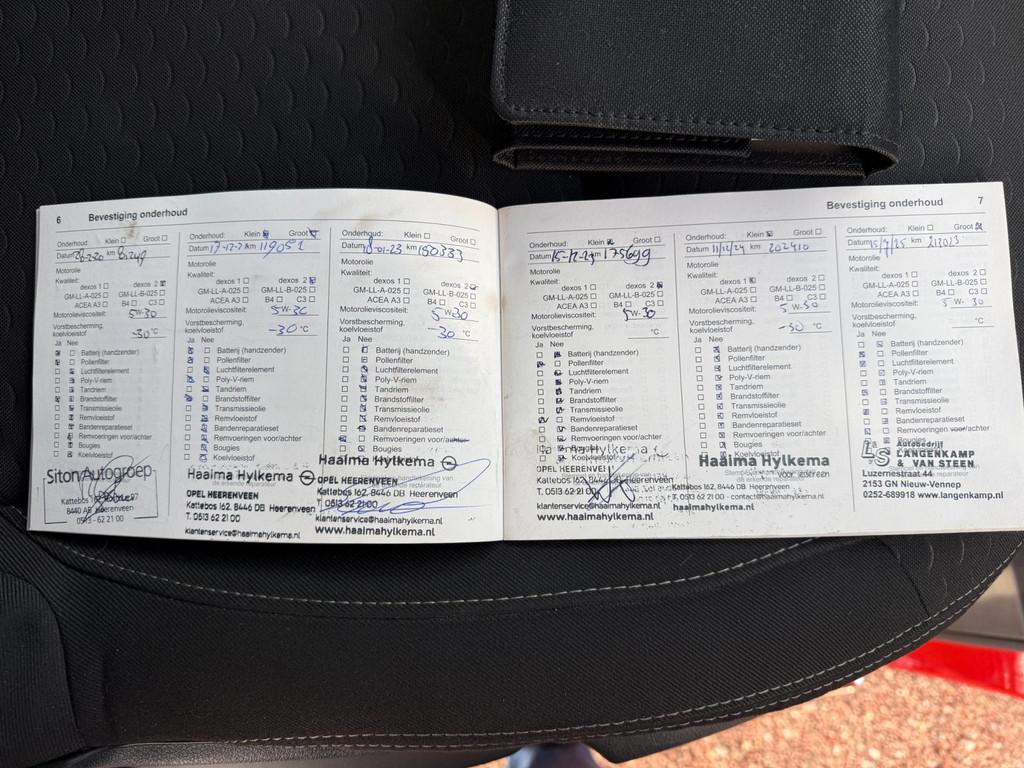 6 Bevestiging onderhoud
Onderhoud: Klein Groot
Datum 26-2-20 km
Motorolie
Kwaliteit:
dexos 1 dexos 2
GM-LL-A-025 GM-LL-B-025
ACEA A3 B4 C3
Motorolieviscositeit: 5W-30
Vorstbescherming, koelvloeistof -30 °C
Ja Nee
Batterij (handzender)
Pollenfilter
Luchtfilterelement
Poly-V-riem
Tandriem
Brandstoffilter
Transmissieolie
Remvloeistof
Bandenreparatieset
Remvoeringen voor/achter
Bougies
Koelvloeistof
Siton Autogroep
Kattebos
8440 AB Heerenveen
0513 - 62 21 00
Onderhoud: Klein Groot
Datum 17-12-21 km 119051
Motorolie
Kwaliteit:
dexos 1 dexos 2
GM-LL-A-025 GM-LL-B-025
ACEA A3 B4 C3
Motorolieviscositeit: 5W-30
Vorstbescherming, koelvloeistof -30 °C
Ja Nee
Batterij (handzender)
Pollenfilter
Luchtfilterelement
Poly-V-riem
Tandriem
Brandstoffilter
Transmissieolie
Remvloeistof
Bandenreparatieset
Remvoeringen voor/achter
Bougies
Koelvloeistof
Haaima Hylkema
OPEL HEERENVEEN
Kattebos 162, 8446 DB Heerenveen
T. 0513 62 21 00
klantenservice@haaimahylkema.nl
Onderhoud: Klein Groot
Datum 18-01-23 km 150333
Motorolie
Kwaliteit:
dexos 1 dexos 2
GM-LL-A-025 GM-LL-B-025
ACEA A3 B4 C3
Motorolieviscositeit: 5W30
Vorstbescherming, koelvloeistof -30 °C
Ja Nee
Batterij (handzender)
Pollenfilter
Luchtfilterelement
Poly-V-riem
Tandriem
Brandstoffilter
Transmissieolie
Remvloeistof
Bandenreparatieset
Remvoeringen voor/achter
Bougies
Koelvloeistof
Haaima Hylkema
OPEL HEERENVEEN
Kattebos 162, 8446 DB Heerenveen
T. 0513 62 21 00
klantenservice@haaimahylkema.nl
www.haaimahylkema.nl
Bevestiging onderhoud 7
Onderhoud: Klein Groot
Datum 15-12-23 km 175699
Motorolie
Kwaliteit:
dexos 1 dexos 2
GM-LL-A-025 GM-LL-B-025
ACEA A3 B4 C3
Motorolieviscositeit: 5W-30
Vorstbescherming, koelvloeistof °C
Ja Nee
Batterij (handzender)
Pollenfilter
Luchtfilterelement
Poly-V-riem
Tandriem
Brandstoffilter
Transmissieolie
Remvloeistof
Bandenreparatieset
Remvoeringen voor/achter
Bougies
Koelvloeistof
Haaima Hylkema
OPEL HEERENVEEN
Kattebos 162, 8446 DB Heerenveen
T. 0513 62 21 00
klantenservice@haaimahylkema.nl
www.haaimahylkema.nl
Onderhoud: Klein Groot
Datum 11/12/24 km 202410
Motorolie
Kwaliteit:
dexos 1 dexos 2
GM-LL-A-025 GM-LL-B-025
ACEA A3 B4 C3
Motorolieviscositeit: 5W-30
Vorstbescherming, koelvloeistof -30 °C
Ja Nee
Batterij (handzender)
Pollenfilter
Luchtfilterelement
Poly-V-riem
Tandriem
Brandstoffilter
Transmissieolie
Remvloeistof
Bandenreparatieset
Remvoeringen voor/achter
Bougies
Koelvloeistof
Haaima Hylkema
Kattebos 162, 8446 DB Heerenveen
T. 0513 62 21 00 - contact@haaimahylkema.nl
haaimahylkema.nl
Onderhoud: Klein Groot
Datum 15/7/25 km 212023
Motorolie
Kwaliteit:
dexos 1 dexos 2
GM-LL-A-025 GM-LL-B-025
ACEA A3 B4 C3
Motorolieviscositeit: 5W-30
Vorstbescherming, koelvloeistof °C
Ja Nee
Batterij (handzender)
Pollenfilter
Luchtfilterelement
Poly-V-riem
Tandriem
Brandstoffilter
Transmissieolie
Remvloeistof
Bandenreparatieset
Remvoeringen voor/achter
Bougies
L&S Autobedrijf
LANGENKAMP
& VAN STEEN
Luzernestraat 44
2153 GN Nieuw-Vennep
0252-689918 www.langenkamp.nl